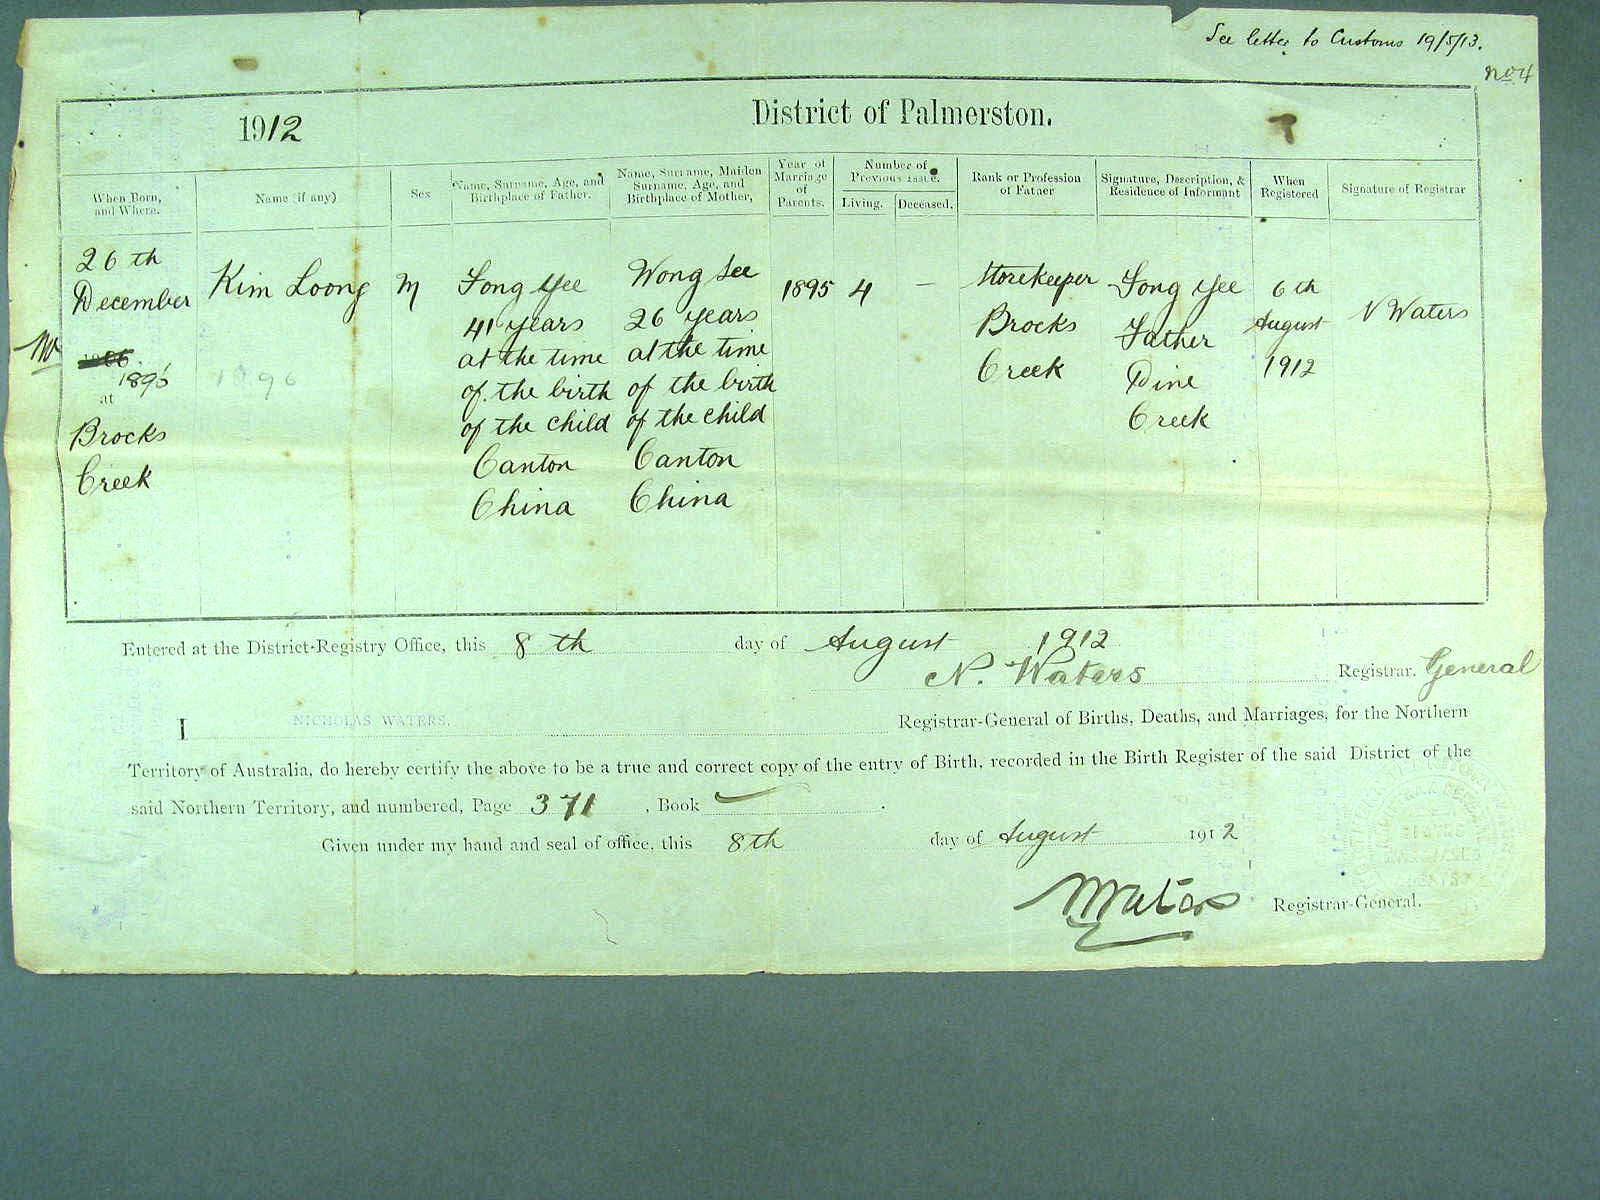 See letter to Customs 19/5/13.
No 4
1912
District of Palmerston.
When Born,
and Where.
Name (if any)
Sex
Name, Surname, Age, and
Birthplace of Father.
Name, Surname, Maiden
Surname, Age, and
Birthplace of Mother,
Year of
Marriage
of
Parents.
Number of
Previous issue.
Living.
Deceased.
Rank or Profession
of Father
Signature, Description, &
Residence of Informant
When
Registered
Signature of Registrar
26th
December
1896
at
Brocks
Creek
Kim Loong
1896
M
Fong Yee
41 years
at the time
of the birth
of the child
Canton
China
Wong See
26 years
at the time
of the birth
of the child
Canton
China
1895
4
—
Storekeeper
Brocks
Creek
Fong Yee
Father
Pine
Creek
6th
August
1912
N Waters
Entered at the District-Registry Office, this 8th day of August 1912
N. Waters Registrar. General
I NICHOLAS WATERS. Registrar-General of Births, Deaths, and Marriages, for the Northern
Territory of Australia, do hereby certify the above to be a true and correct copy of the entry of Birth, recorded in the Birth Register of the said District of the
said Northern Territory, and numbered, Page 371, Book .
Given under my hand and seal of office, this 8th day of August 1912
N Waters Registrar-General.